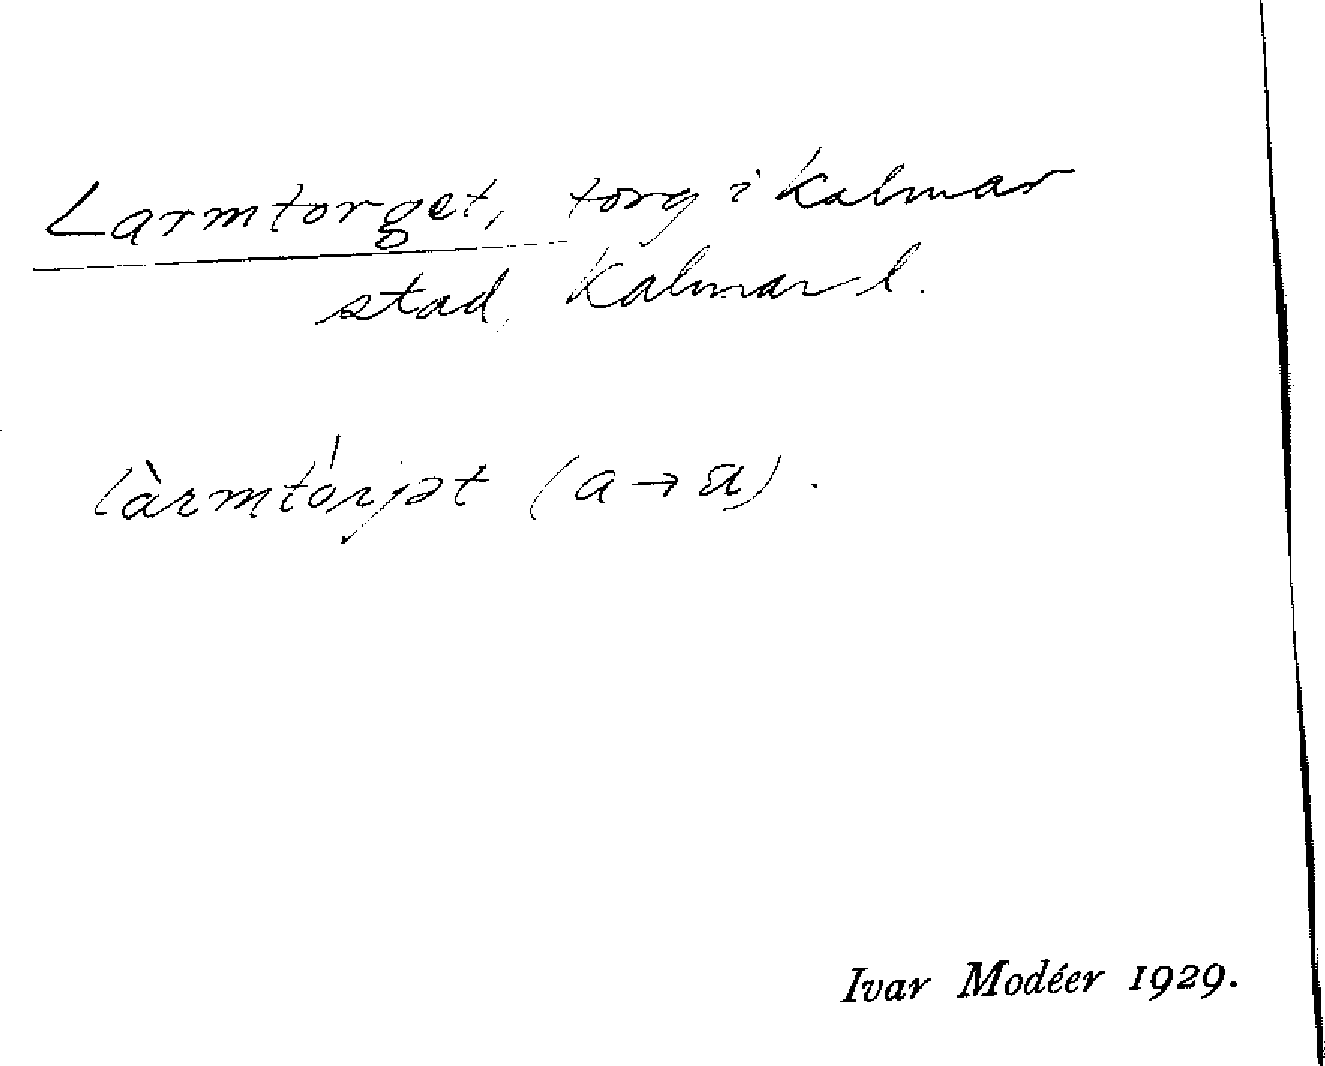 Larmtorget, torg i Kalmar
stad, Kalmar l.
làrmtórjət (a → a͡).
Ivar Modéer 1929.